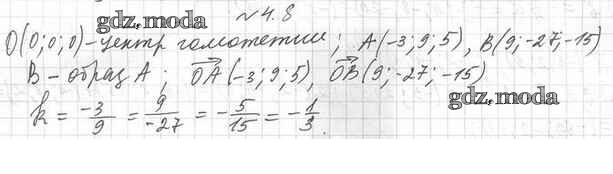 №4.8
gdz.moda
O(0;0;0)-центр гомотетии; A(-3;9;5), B(9;-27;-15)
B - образ A; OA(-3;9;5), OB(9;-27;-15)
gdz.moda
k = -3/9 = 9/-27 = -5/15 = -1/3.